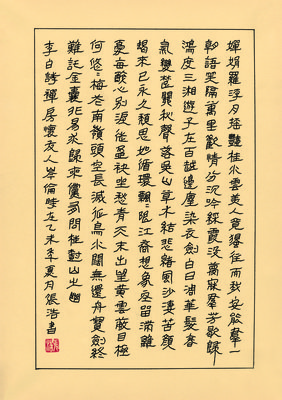 嬋娟羅浮月搖艷桂水雲美人竟獨往而我安能群一
朝語笑隔萬里歡情分沉吟綵霞沒夢寐群芳歇歸
鴻度三湘遊子在百越邊塵染衣劍白日凋華髮春
氣變楚關秋聲落吳山草木結悲緒風沙淒苦顏
朅來已永久頹思如循環飄々限江裔想象空留滯離
憂每醉心別淚徒盈袂坐愁青天末出望黃雲蔽目極
何悠々梅花南嶺頭空長滅征鳥水闊無還舟寶劍終
難託金囊非易求歸來儻有問桂樹山之幽
李白詩禪房懷友人岑倫時在乙未年夏月張浩書